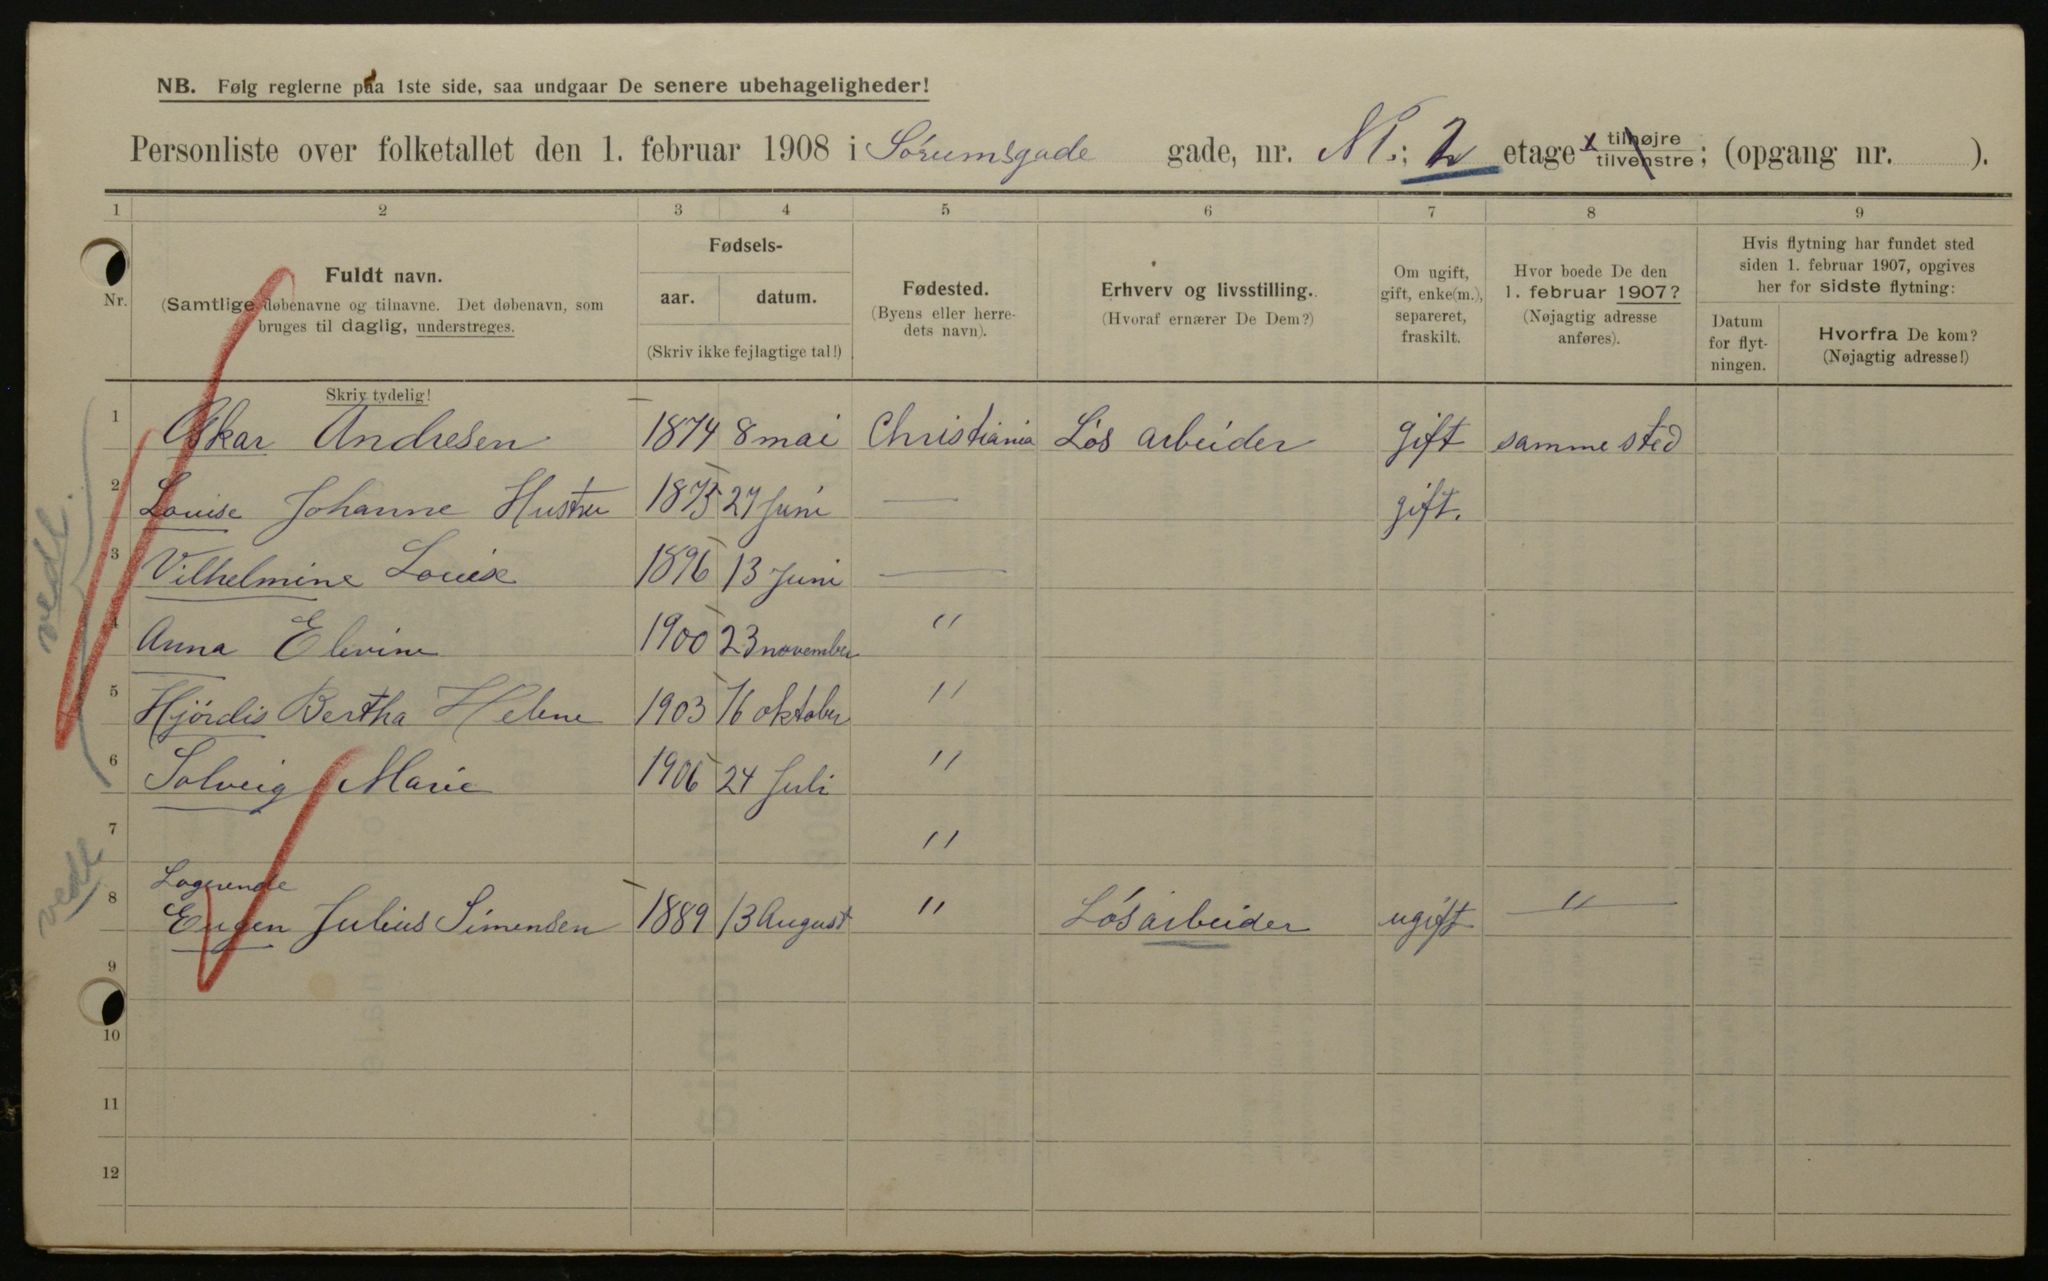 NB. Følg reglerne paa 1ste side, saa undgaar De senere ubehageligheder!
Personliste over folketallet den 1. februar 1908 i Sórumsgade gade, nr. ; 2 etage x tilhøjre tilvenstre; (opgang nr. ).
1 2 3 4 5 6 7 8 9
Nr.
Fuldt navn.
(Samtlige døbenavne og tilnavne. Det døbenavn, som
bruges til daglig, understreges.
Skriv tydelig!
Fødsels-
aar. datum.
(Skriv ikke fejlagtige tal!)
Fødested.
(Byens eller herre-
dets navn).
Erhverv og livsstilling.
(Hvoraf ernærer De Dem?)
Om ugift,
gift, enke(m.),
separeret,
fraskilt.
Hvor boede De den
1. februar 1907?
(Nøjagtig adresse
anføres).
Hvis flytning har fundet sted
siden 1. februar 1907, opgives
her for sidste flytning:
Datum
for flyt-
ningen.
Hvorfra De kom?
(Nøjagtig adresse!)
1 Oskar Andresen 1874 8 mai Christiania Lós arbeider gift samme sted
2 Louise Johanne Hustru 1875 27 Juni — gift.
3 Vilhelmine Louise 1896 13 Juni —
4 Anna Elevine 1900 23 november "
5 Hjórdis Bertha Helene 1903 16 oktober "
6 Solveig Marie 1906 24 Juli "
7 "
Logerende
8 Eugen Julius Simensen 1889 13 August " Lósarbeider ugift — " —
9
10
11
12
vedl.
vedl